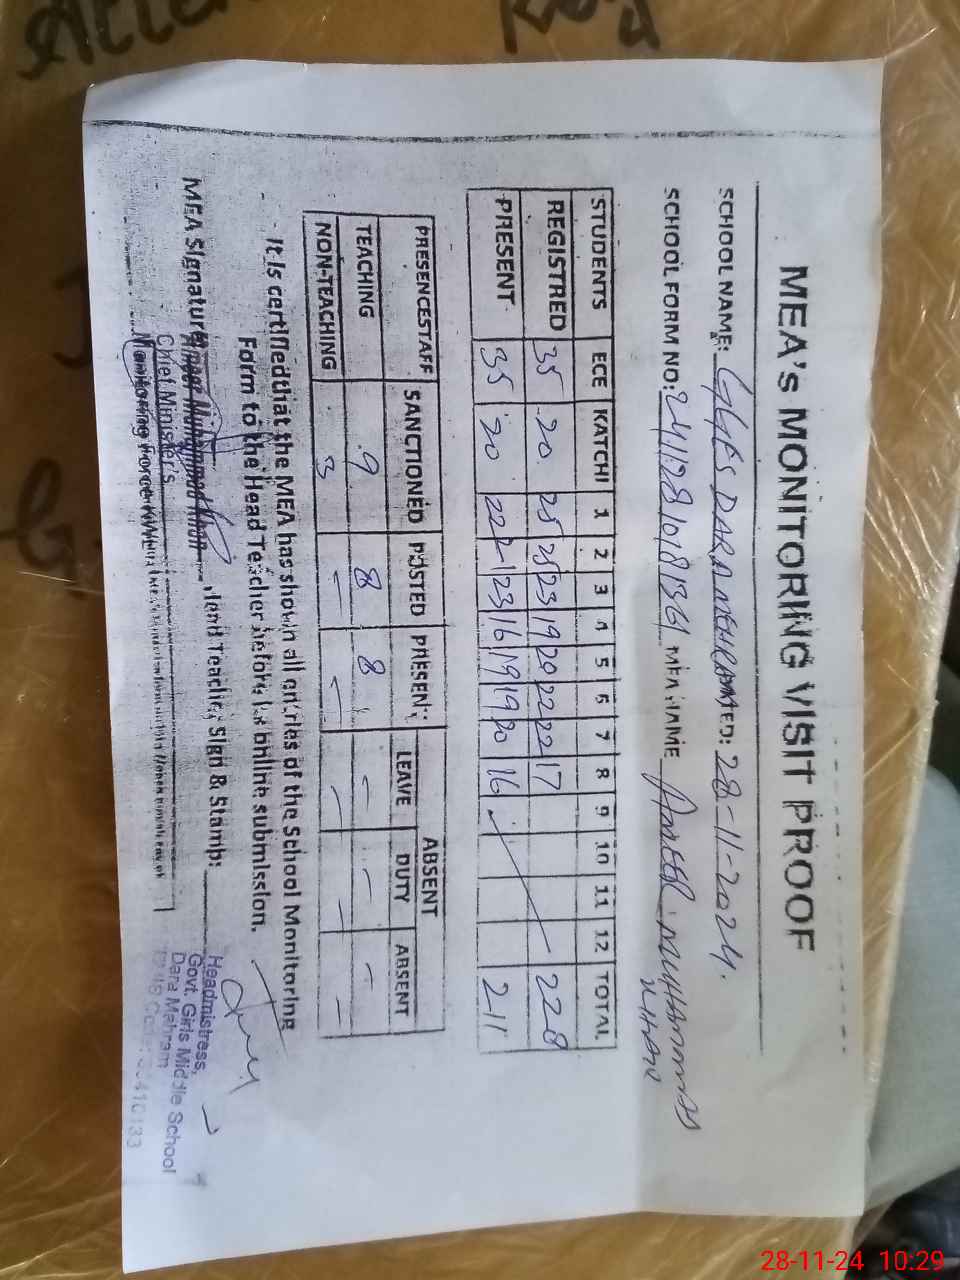 MEA's MONITORING VISIT PROOF
SCHOOL NAME: GGES DARA MEHRAM DATED: 28-11-2024.
SCHOOL FORM NO: MEA NAME AMEER MUHAMMAD KHAN
STUDENTS ECE KATCHI 1 2 3 4 5 6 7 8 9 10 11 12 TOTAL
REGISTRED 35 20 25 25 23 19 20 22 22 17 228
PRESENT 35 20 22 21 23 16 19 19 20 16 211
PRESENCESTAFF SANCTIONED POSTED PRESENT ABSENT
LEAVE DUTY ABSENT
TEACHING 9 8 8 - - -
NON-TEACHING 3 - - - - -
It is certified that the MEA has shown all entries of the School Monitoring
Form to the Head Teacher before its online submission.
MEA Signature: Head Teacher Sign & Stamp:
Ameer Muhammad Khan
Chief Minister's
Monitoring Force
Headmistress,
Govt. Girls Middle School
Dara Mehram
28-11-24 10:29